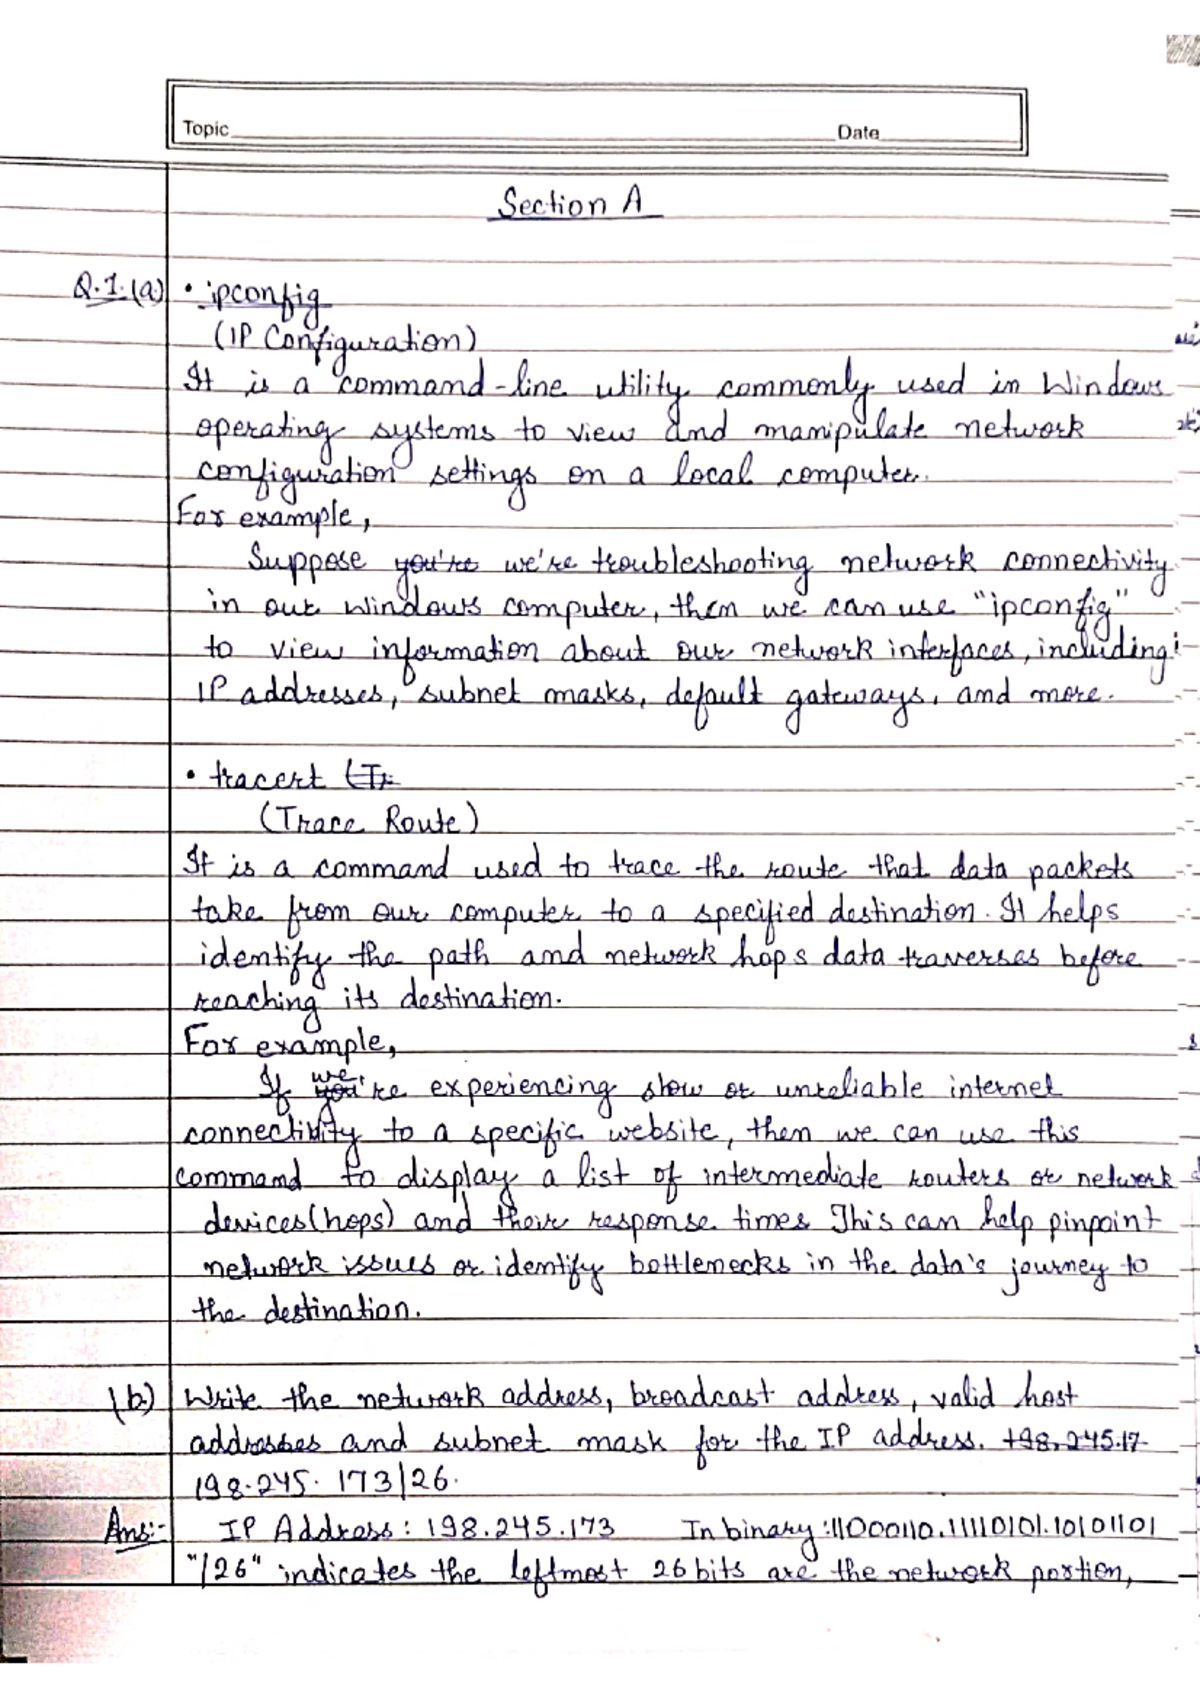 Topic Date
Section A
Q.1.(a) • ipconfig
(IP Configuration)
It is a command-line utility commonly used in Windows
operating systems to view and manipulate network
configuration settings on a local computer.
For example,
Suppose you're we're troubleshooting network connectivity
in our windows computer, then we can use "ipconfig"
to view information about our network interfaces, including
IP addresses, subnet masks, default gateways, and more.
• tracert (Tr
(Trace Route)
It is a command used to trace the route that data packets
take from our computer to a specified destination. It helps
identify the path and network hops data traverses before
reaching its destination.
For example,
If you we're experiencing slow or unreliable internet
connectivity to a specific website, then we can use this
command to display a list of intermediate routers or network
devices(hops) and their response times This can help pinpoint
network issues or identify bottlenecks in the data's journey to
the destination.
(b) Write the network address, broadcast address, valid host
addresses and subnet mask for the IP address. 198.245.17
198.245. 173/26.
Ans:- IP Address: 198.245.173 In binary:11000110.11110101.10101101
"/26" indicates the leftmost 26 bits are the network portion,